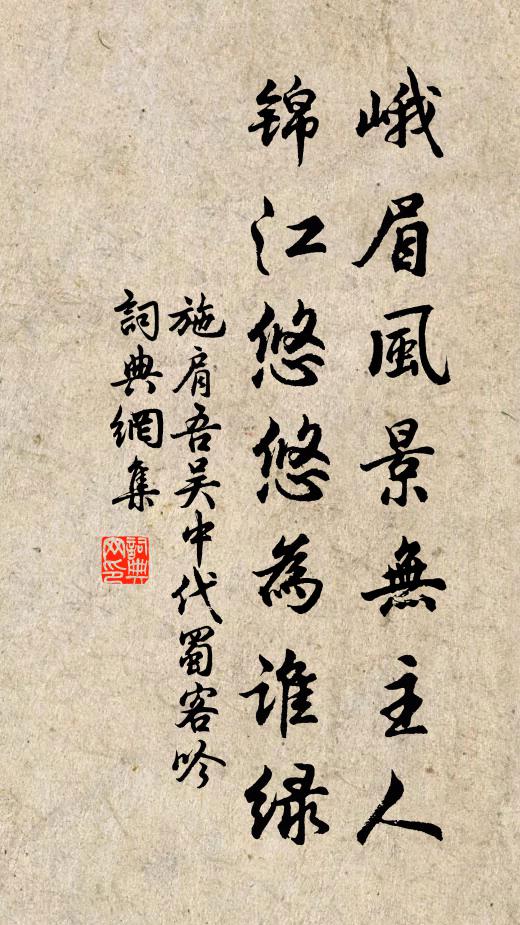 峨眉風景無主人
锦江悠悠為誰绿
施肩吾吴中代蜀客吟
詞典網集
詞典网印